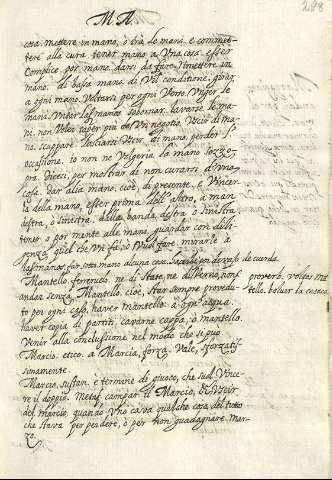 M A.
298
cosa. mettere in mano, ò trà le mani. è commet=
tere alla cura. tener mano a Una cosa. esser
Complice. por mano. darsi da fare. rimettere in
mano. di bassa mano. di Vil conditione. giocar
a ogni mano. Voltarsi per ogni Verso. Unger le
mani. Unter lasmanos. sobornar. lavarsi le ma=
ni. non Voler saper più de Un negotio. Uscir di ma=
no. scappare. lasciarsi Uscir di mano. perder l'
occasione. io non ne Volgeria la mano sozzo=
pra. Diceci, per mostrar de non curarsi d'Una
cosa. Dar alla mano. cioè, di presente. Vincer
la della mano. esser prima dell' altro. a man
destra, ò sinistra. dalla banda destra, ò sinistra
tener, ò por mente alle mani. guardar con dili=
genza, quel che Un fà, ò Vuol fare. mirarle à
las manos. far sotto mano alcuna cosa.
Mantello. ferreruelo. ne di State, ne d'Inverno, non
andar senza Mantello. cioè, star sempre provedu=
to per ogni caso. haver mantello à ogni acqua.
haver copia di partiti. cavarne cappa, ò mantello.
Venir alla conclusione, nel modo che si può.
Marcio. etico. a Marcia forza. Vale, sforzatis=
simamente.
Marcio, sustan. è termine di giuoco, che suol Vince=
re il doppio. Metaf. campar il Marcio,
del marcio. quando Uno cava qualche cosa del tutto
che stava per perdere, ò per non guadagnare. Mar=
zo.
proverb.